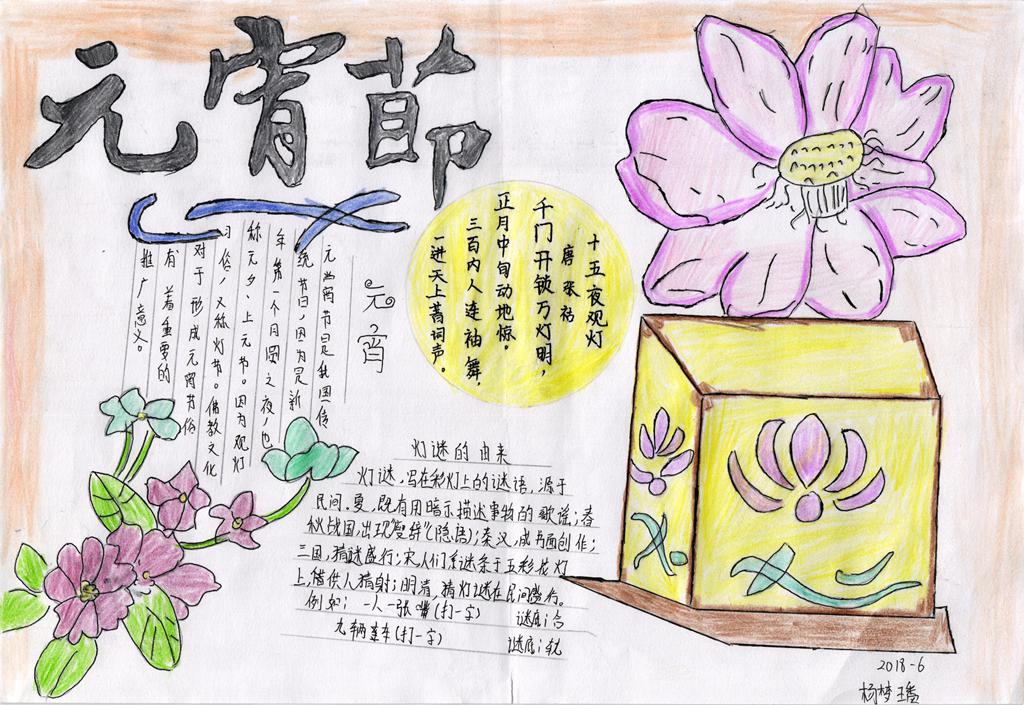 元宵节
元宵
元宵节是我国传
统节日，因为是新
年第一个月圆之夜，也
称元夕、上元节。因为观灯
习俗，又称灯节。佛教文化
对于形成元宵节俗
有着重要的
推广意义。
十五夜观灯
唐 张祜
千门开锁万灯明，
正月中旬动地惊。
三百内人连袖舞，
一进天上著词声。
灯谜的由来
灯谜，写在彩灯上的谜语，源于
民间。夏，既有用暗示描述事物的歌谣；春
秋战国，出现"瘦辞"（隐语）；秦汉，成书面创作；
三国，猜谜盛行；宋，人们系谜条于五彩花灯
上，借供人猜射；明清，猜灯谜在民间盛行。
例如：一人一张嘴（打一字） 谜底；合
九辆车（打一字） 谜底；轨
2018-6
杨梦瑶